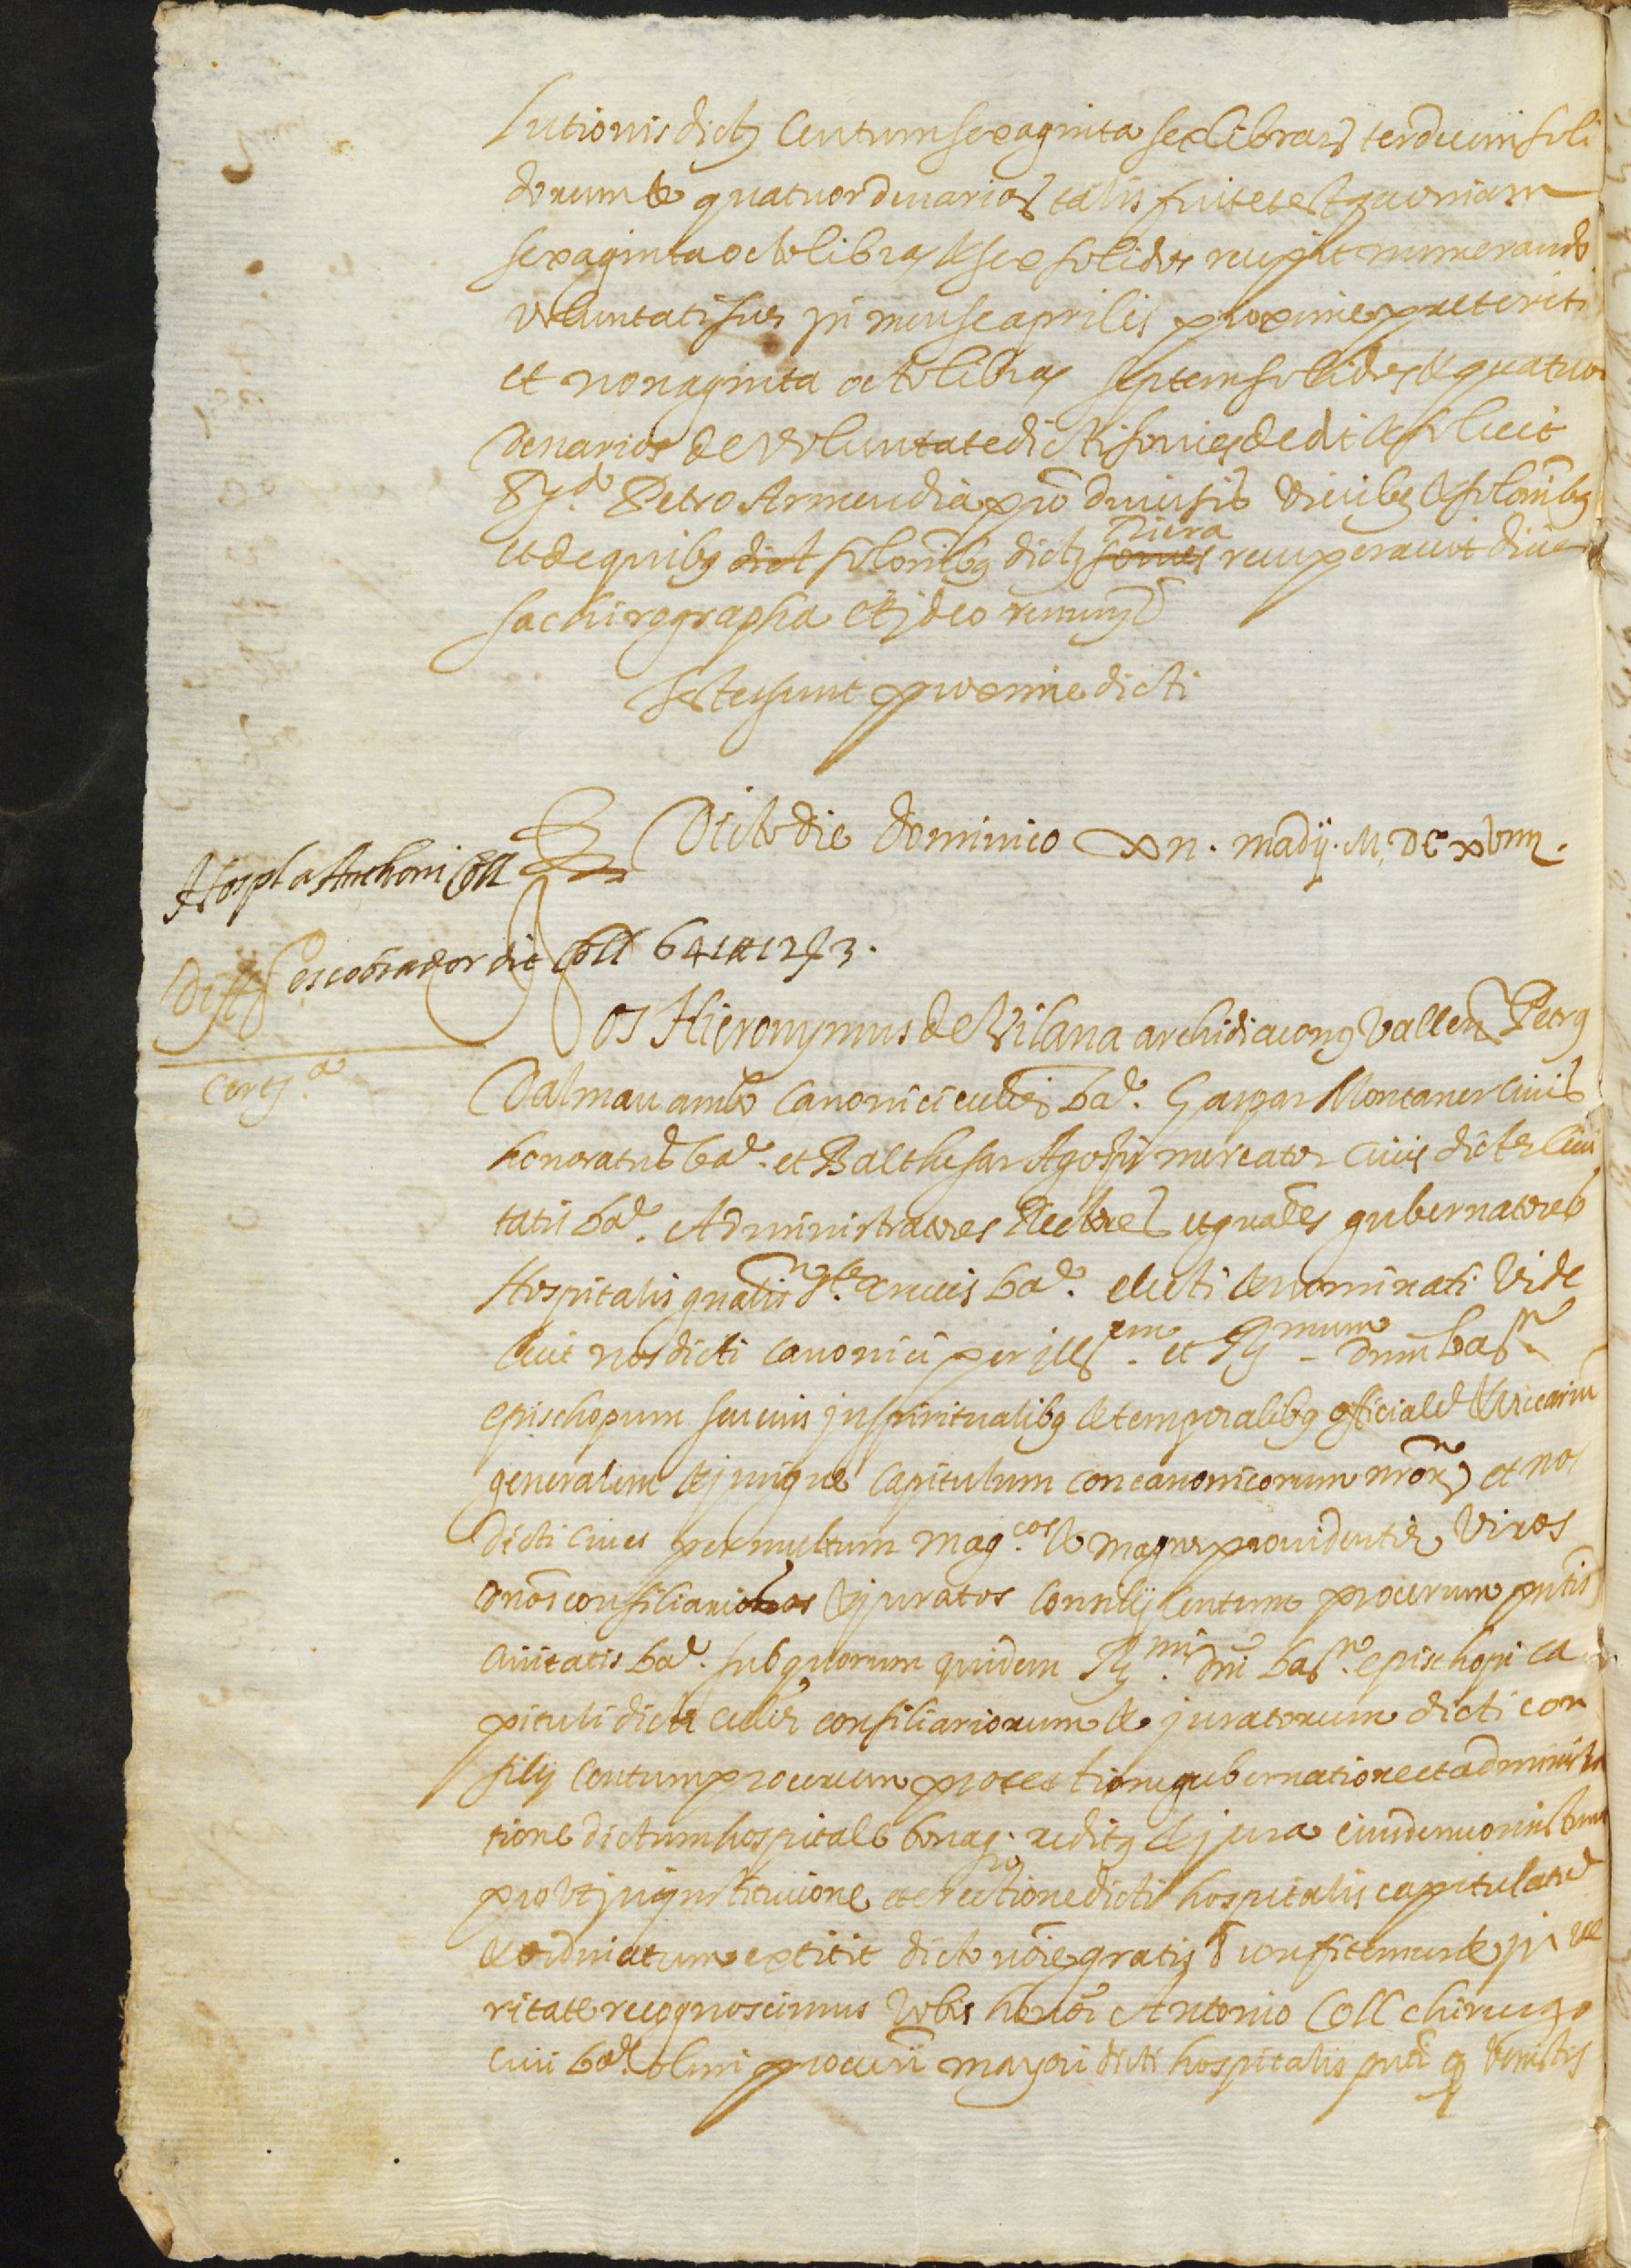 lutionis dictis Centum sexaginta sex librars terdecim soli
dorum & quatuor denarios talis fuit et est quoniam
sexaginta octo libras & sex solidos recepit numerando
voluntati sue in mense aprilis proxime preteriti
et nonaginta octo libras septem solidos & quatuor
denarios de voluntate dicti fonies dedit & soluit
Petro Armendia pro diuersis vicibus & solonibus
et de quibus dict solonibus dictus fonies Riera recuperauit diuer
sa chirographa et ideo renun
Testes sunt proxime dicti
Dicto die dominico xii. madij. M. DC xviiii.
Hospl a Anthoni Coll
escobrador die Coll 641 tt 12 s 3.
Os Hieronymus de Vilana archidiaconus Vallen Petrus
Dalmau ambo Canonici eccl(es) ba. Gaspar Montaner Ciuis
honoratus ba. et Balthesar Agosti mercator Ciuis dicte Ciui
tatis ba. Administratores Rectores et gnales gubernatores
Hospitalis gnalis ste crucis ba. electi & nominati vide
licet nos dicti canonici per ill em et R mum dnm ba
epischopum seu eius in spiritualibus & temporalibus officiale & vicariu
generalem & inique Capitulum concanonicorum nror et nos
dicti ciues per multum mag cos & magne prouidentie viros
dnos consiliarios & juratos Consilij Centum procerum pntis
Ciuitatis ba. sub quorum quidem R mi dni ba epischopi ca
pituli dicte eccle consiliariorum & juratorum dicti con
silij Centum procerum protectione gubernatione et administra
tione dictum hospitale bonaq. reditus & jura eiusdem
prout in institucione et erectione dicti hospitalis capitulatu
& ordinatum extitit dicto noie gratis & confitemur & in ve
ritate recognoscimus vobis honor Antonio Coll chirurgo
Ciui ba. olim procuri mayori dicti hospitalis pnti q